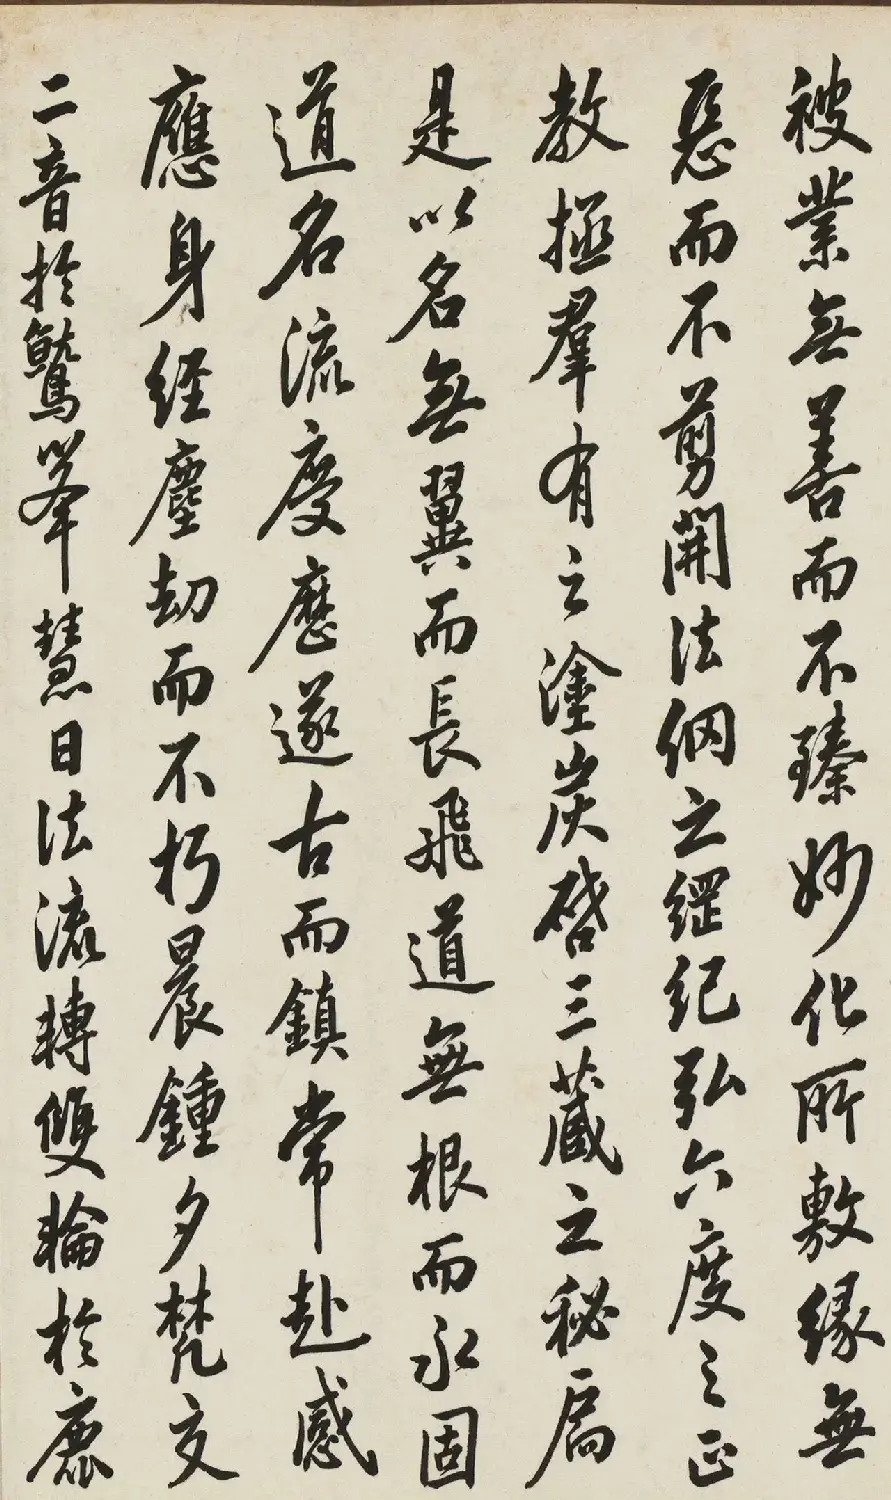 被業無善而不臻妙化所敷緣無
惡而不剪開法網之綱紀弘六度之正
教拯羣有之塗炭啓三藏之秘扃
是以名無翼而長飛道無根而永固
道名流慶歷遂古而鎮常赴感
應身經塵劫而不朽晨鍾夕梵交
二音於鷲峯慧日法流轉雙輪於鹿